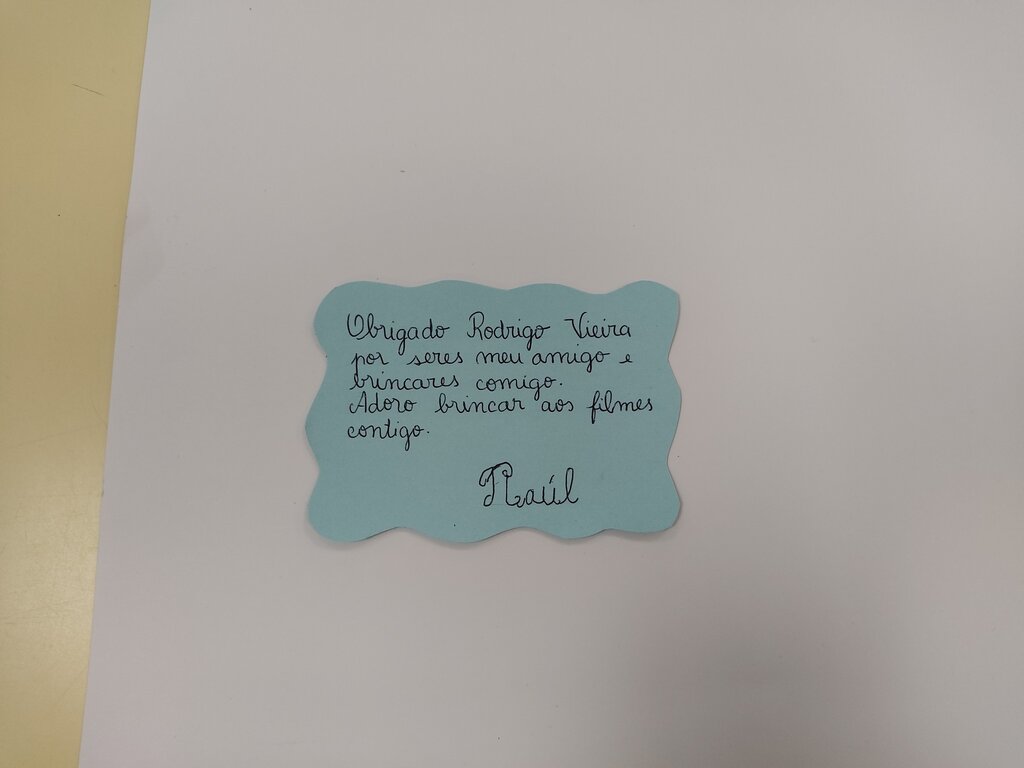 Obrigado Rodrigo Vieira
por seres meu amigo e
brincares comigo.
Adoro brincar aos filmes
contigo.
Raúl